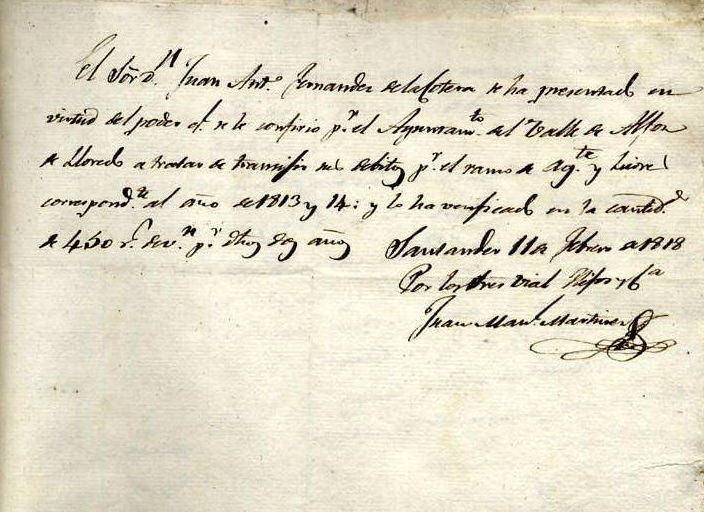 El Sor. Dn. Juan Anto. Fernandez de la Cotera se ha presentado en
virtud del poder q. se le confirio pr. el Ayuntamto. del Valle de Alfoz
de Lloredo a tratar de transijir sus debitos pr. el ramo de Agte. y Licores
correspondte. al año de 1813 y 14: y lo ha verificado en la cantidd.
de 450 rs. de vn. pr. dhos dos años Santander 11 de Febrero de 1818
Por los Sres Vial Hijos y Ca
Juan Manl. Martinez